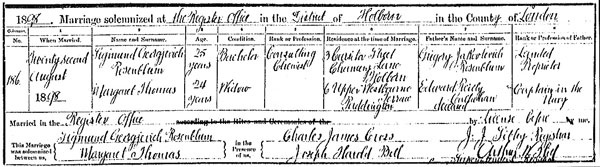 1898. Marriage solemnized at The Register Office in the District of Holborn in the County of London
No. When Married. Name and Surname. Age. Condition. Rank or Profession. Residence at the time of Marriage. Father's Name and Surname. Rank or Profession of Father.
186 Twenty second August 1898 Sigmund Georgjevich Rosenblum 25 years Bachelor Consulting Chemist 3 Cursitor Street Chancery Lane Holborn Gregory Jakovlevich Rosenblum Landed Proprietor
Margaret Thomas 24 years Widow 6 Upper Westbourne Terrace Paddington Edward Callahan deceased Captain in the Navy
Married in the Register Office according to the Rites and Ceremonies of the by License before by me,
This Marriage was solemnized between us, Sigmund Georgjevich Rosenblum Margaret Thomas in the Presence of us, Charles James Cross Joseph Harold Bell Registrar
Superintendent Registrar